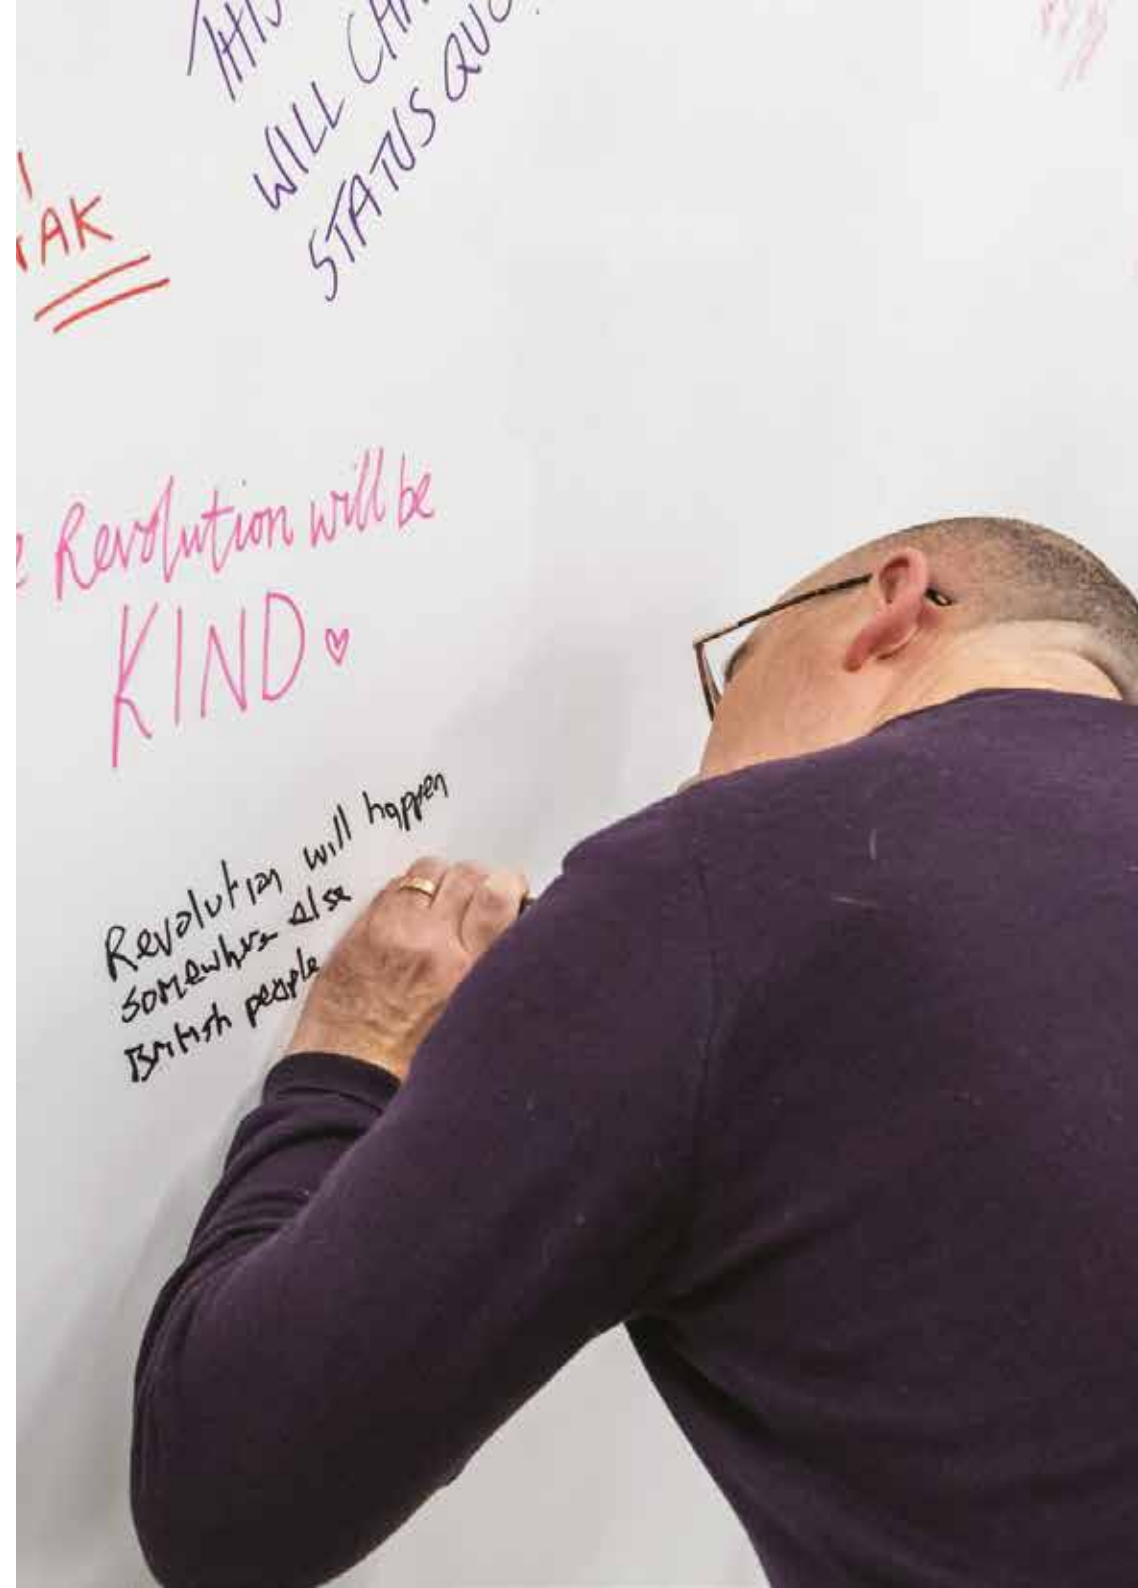 WILL
STATUS QUO
AK
Revolution will be
KIND
Revolution will happen
somewhere else
British people